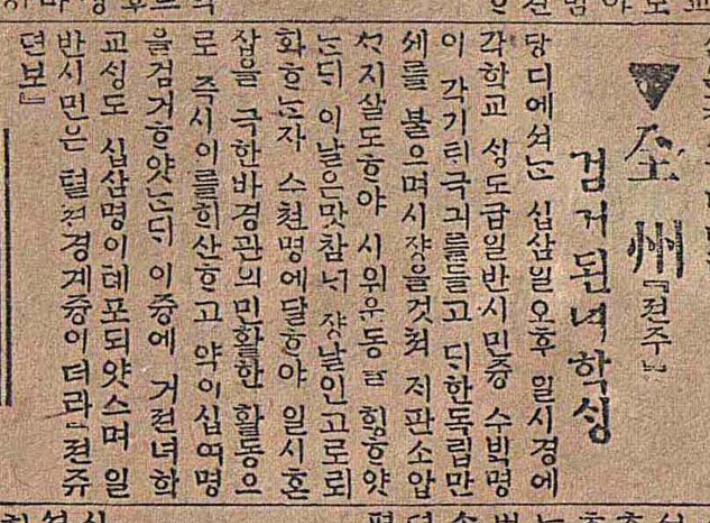 ▼全州『젼주』
검거된녀학싱
당디에셔는 십삼일오후 일시경에
각학교 싱도급일반시민즁 수빅명
이 각기태극긔를들고 디한독립만
세를 불으며시쟝을것쳐 지판소압
ᄭᆞ지살도ᄒᆞ야 시위운동을 힝ᄒᆞ얏
는디 이날은맛참너 쟝날인고로뢰
화ᄒᆞ는쟈 스쳔명에달ᄒᆞ야 일시혼
잡을 극한바경관의민활한 활동으
로 즉시이를희산ᄒᆞ고 약이십여명
을검거ᄒᆞ얏는디 이즁에 거젼녀학
교싱도 십삼명이톄포되얏스며 일
반시민은 텰젼경계즁이더라『젼쥬
뎐보』